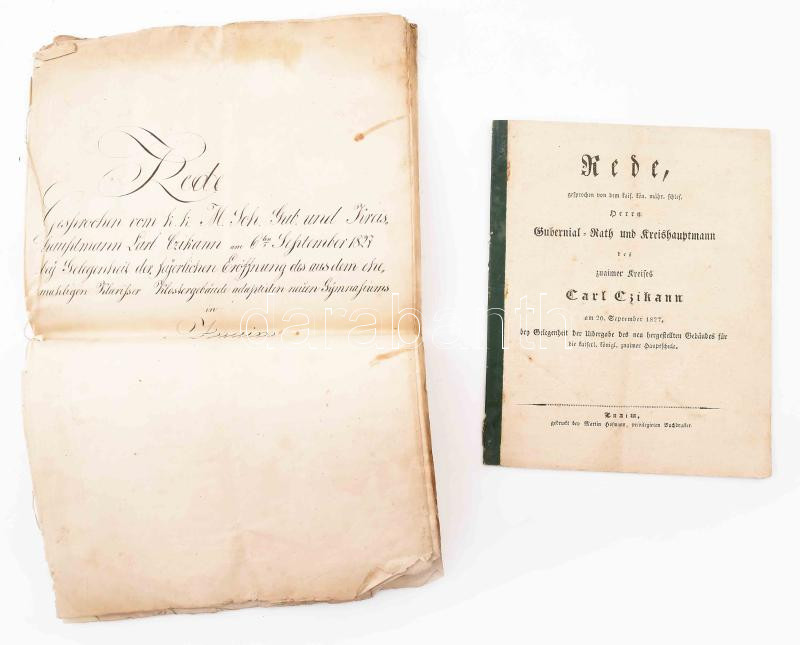 Rede
Gesprochen vom k. k. M. Sch. Gub. und Kreis,
hauptmann Carl Czikann am 6ten September 1827
bey Gelegenheit der feyerlichen Eröffnung des aus dem ehe,
mahligen Klostergebäude adaptirten neuen Gymnasiums
in
Znaim
Rede,
gesprochen von dem kais. kön. mähr. schles.
Herrn
Gubernial-Rath und Kreishauptmann
des
znaimer Kreises
Carl Czikann
am 20. September 1827,
bey Gelegenheit der Uibergabe des neu hergestellten Gebäudes für
die kaiserl. königl. znaimer Hauptschule.
Znaim,
gedruckt bey Martin Hofmann, privilegirten Buchdrucker.
darabanth